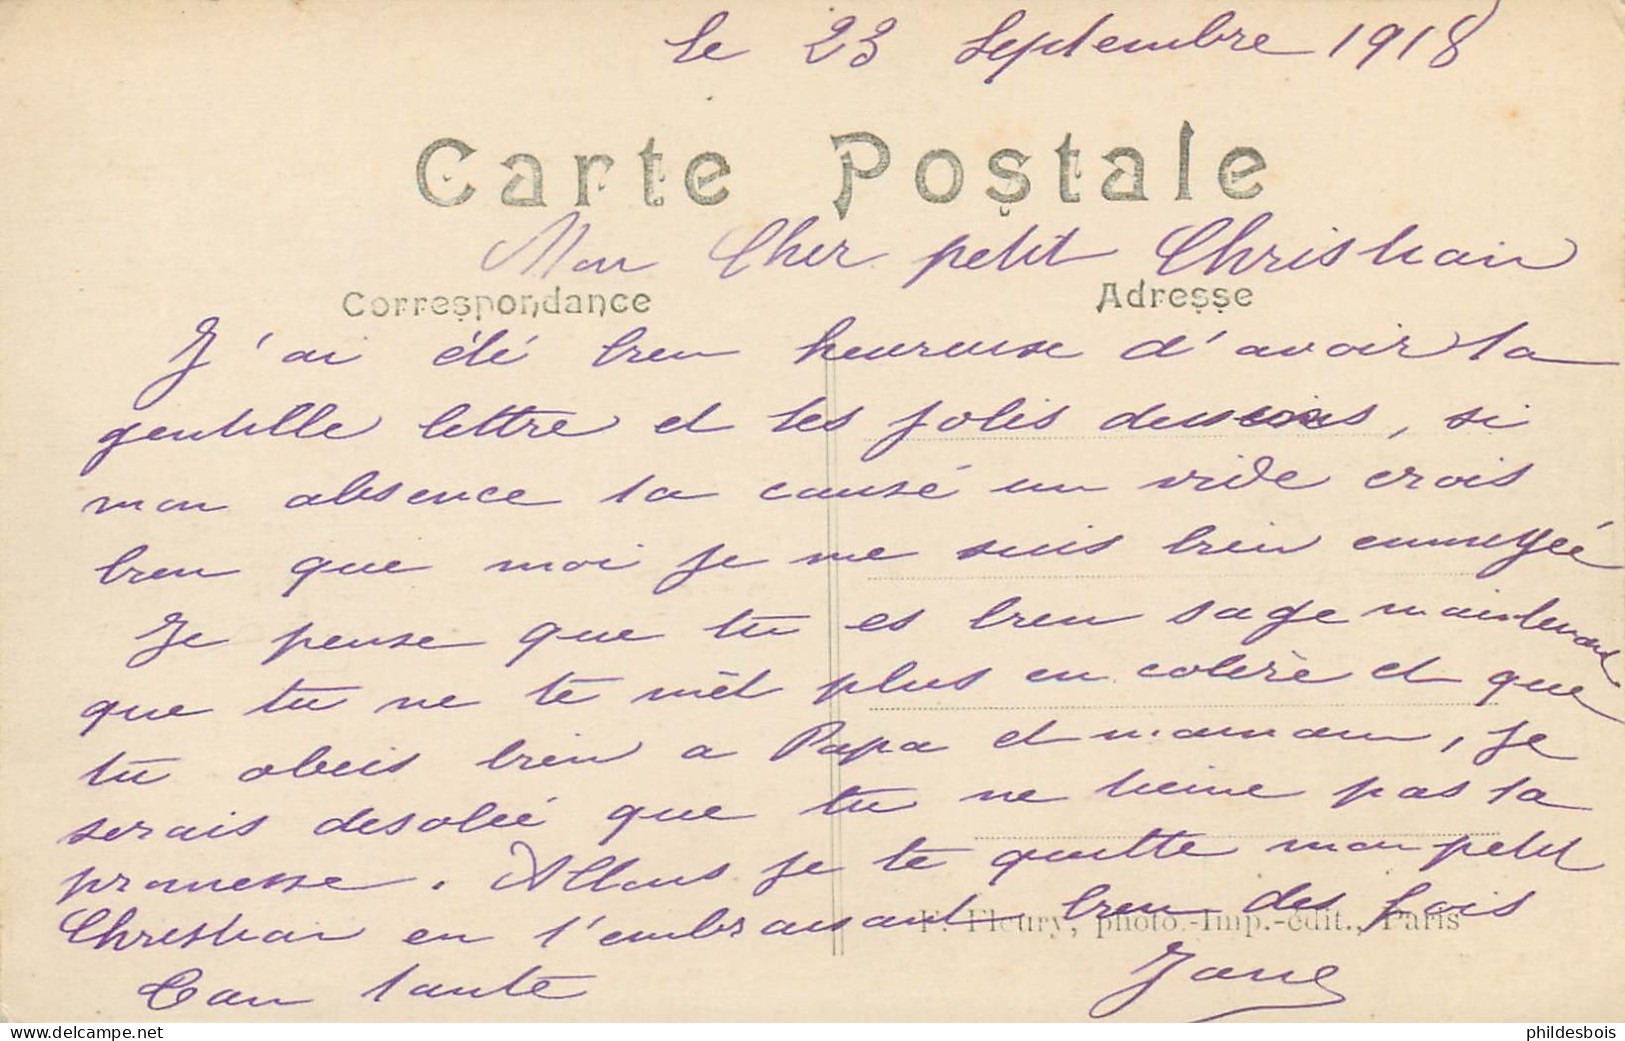 le 23 Septembre 1918
Carte Postale
Mon Cher petit Christian
Correspondance
Adresse
J'ai été bien heureuse d'avoir ta
gentille lettre et tes jolis dessins, si
mon absence ta causé un vide crois
bien que moi je me suis bien ennuyée
Je pense que tu es bien sage maintenant
que tu ne te mèt plus en colère et que
tu obeis bien a Papa et maman, je
serais desolée que tu ne tienne pas ta
promesse. Allons je te quitte mon petit
Christian en t'embrassant bien des fois
F. Fleury, photo.-Imp.-édit., Paris
Tan tante
Jane
www.delcampe.net
phildesbois